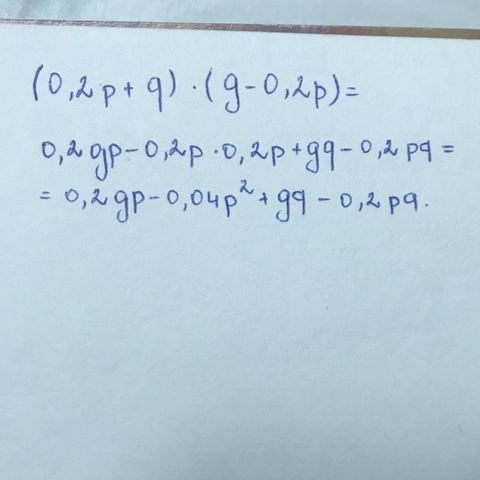 (0,2p+q)·(g-0,2p)=
0,2gp-0,2p·0,2p+gq-0,2pq=
=0,2gp-0,04p²+gq-0,2pq.